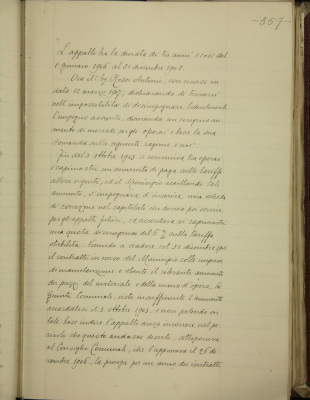 -367-
L'appalto ha la durata di tre anni e cioè dal
1° gennaio 1906 al 31 dicembre 1908.
Ora il Sig. Rossi Antonio, con ricorso in
data 12 marzo 1907, dichiarando di trovarsi
nell'impossibilità di disimpegnare lodevolmente
l'impegno assunto, domanda un congruo au-
mento di mercede su gli operai e basa la sua
domanda sulle seguenti ragioni e cioè:
Fin dal 3 ottobre 1903 si conveniva tra operai
e capimastri un aumento di paga sulle tariffe
allora vigenti, ed il Municipio accettando tale
aumento, s'impegnava d'inserire una
di nel capitolato che doveva poi servire
per gli appalti futuri, ed accordava ai capimastri
una quota di compenso del % sulle tariffe
stabilite. Venendo a scadere col 31 dicembre 1905
il contratto in corso del Municipio colle imprese
di manutenzione e stante il rilevante aumento
dei prezzi del materiale e della mano d'opera, la
Giunta Comunale, visto insufficiente l'aumento
accordato il 3 ottobre 1903, e non potendo su
tale base indire l'appalto senza incorrere nel pe-
ricolo che questo andasse deserto
al Consiglio Comunale, che l'approvava il 26 di-
cembre 1906, la proroga per un anno dei contratti